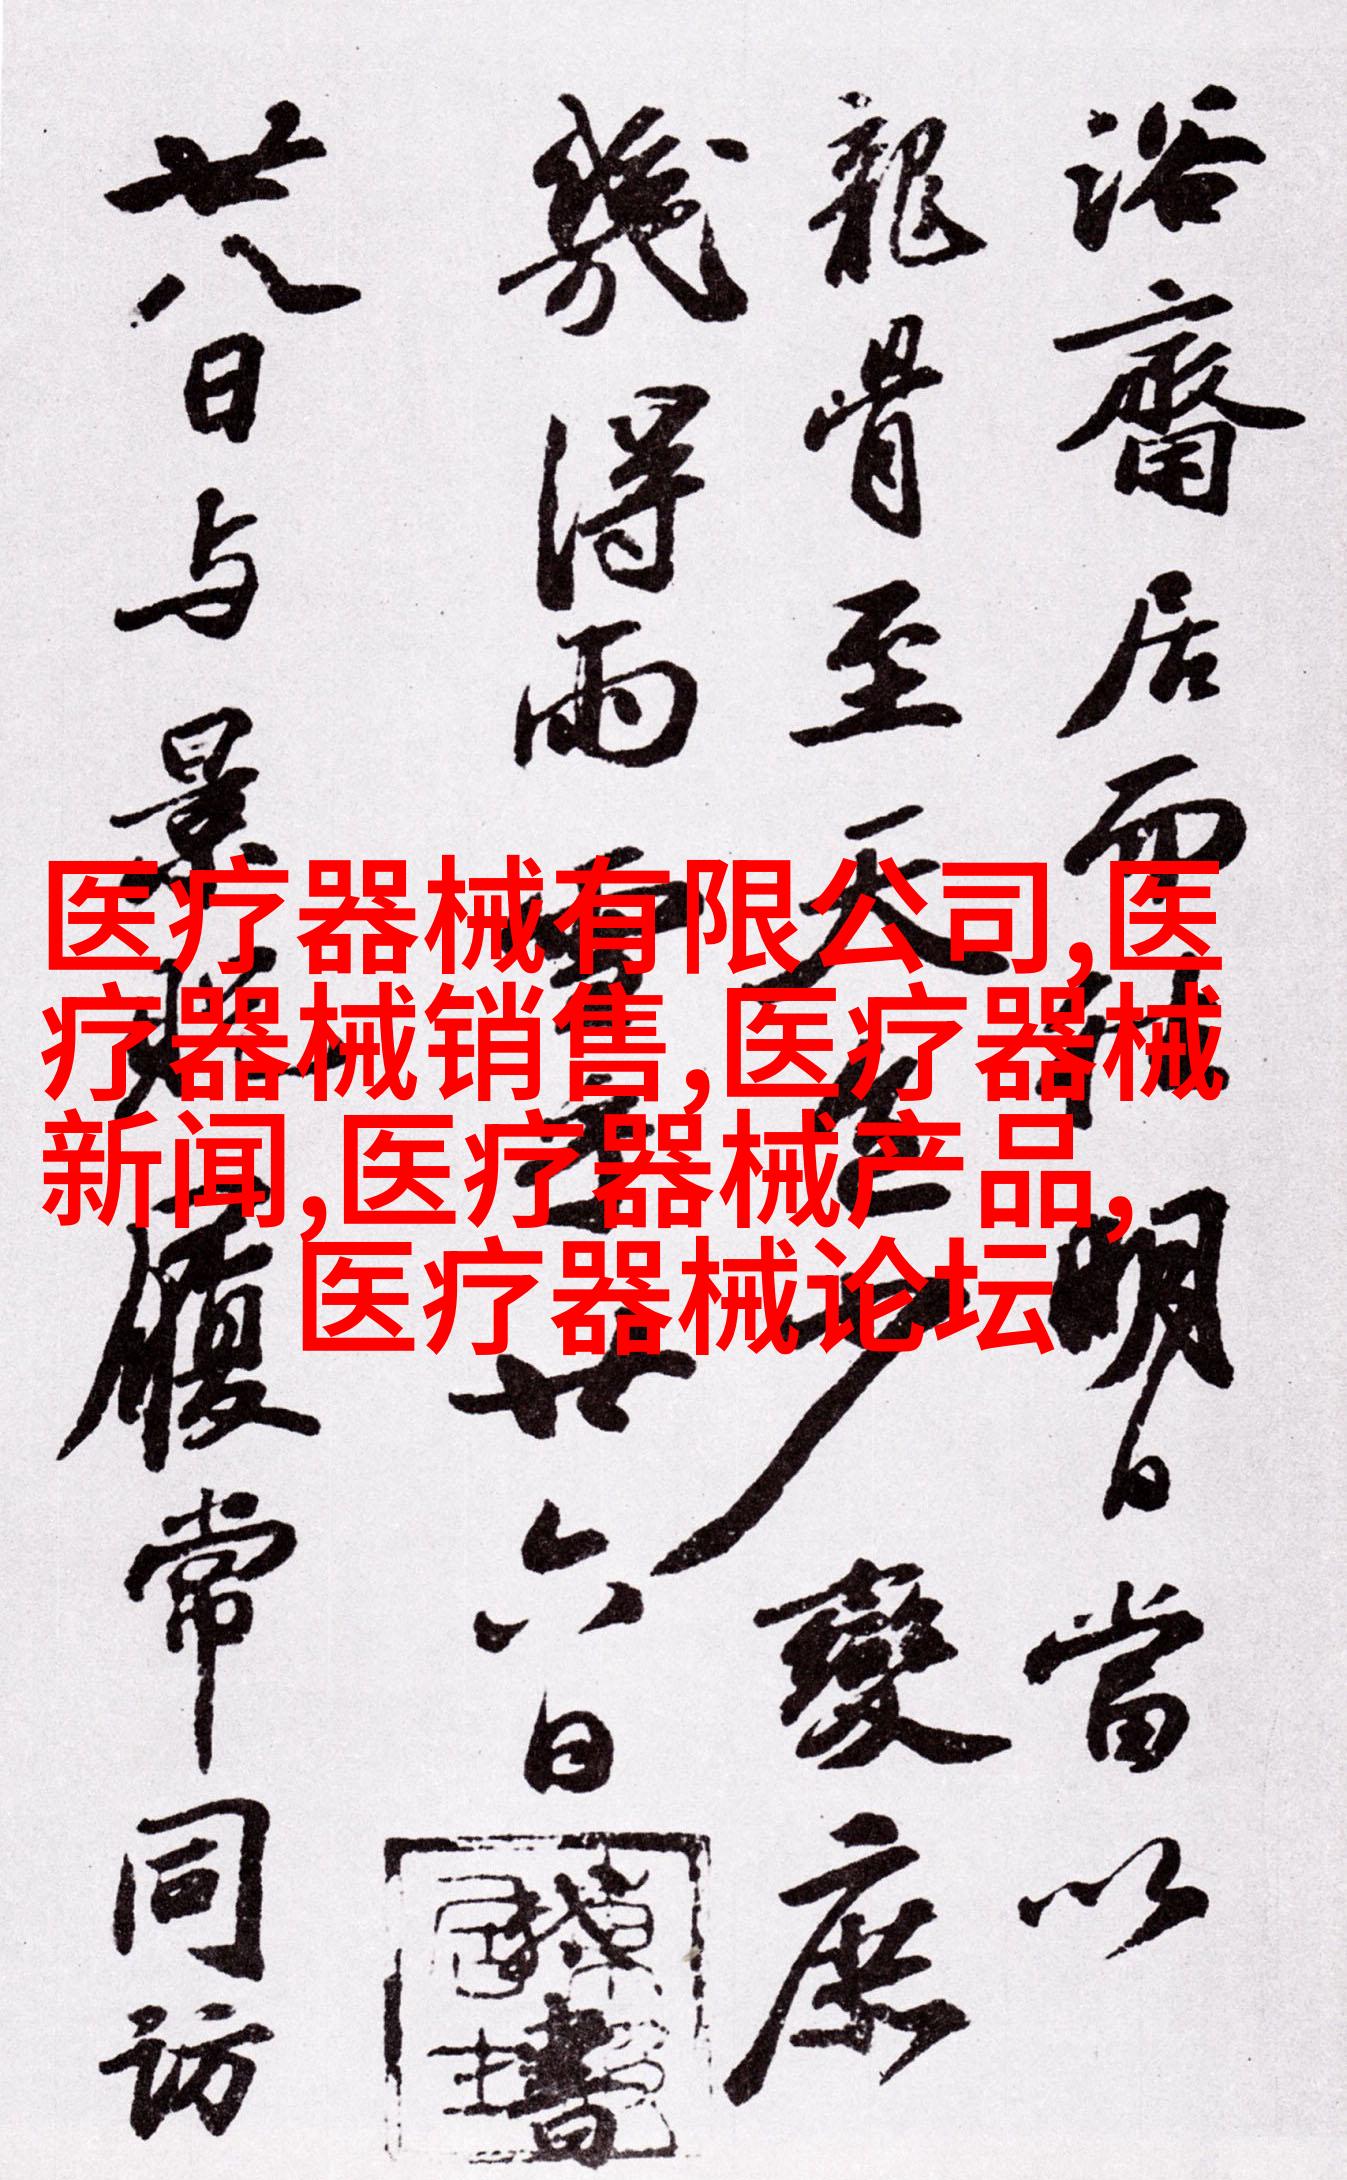 浴齋居而明日當以
龍骨至天少變庶
幾得雨雪廿六日書
廿八日与景貺履常同訪
医疗器械有限公司,医
疗器械销售,医疗器械
新闻,医疗器械产品,
医疗器械论坛